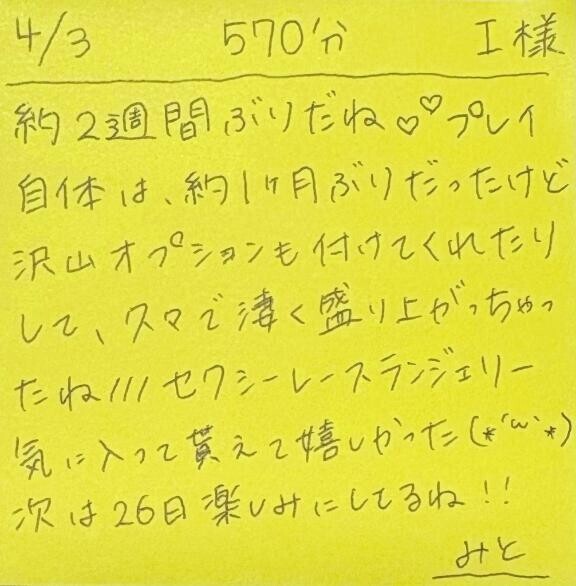 4/3 570分 I様
約2週間ぶりだね♡♡プレイ
自体は、約1ヶ月ぶりだったけど
沢山オプションも付けてくれたり
して、久々で凄く盛り上がっちゃっ
たね///セクシーレースランジェリー
気に入って貰えて嬉しかった(*´ω`*)
次は26日楽しみにしてるね!!
みと